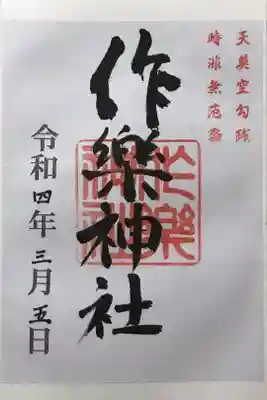 天莫空勾践
時非無范蠡
作樂神社
作樂
神社
令和四年三月五日